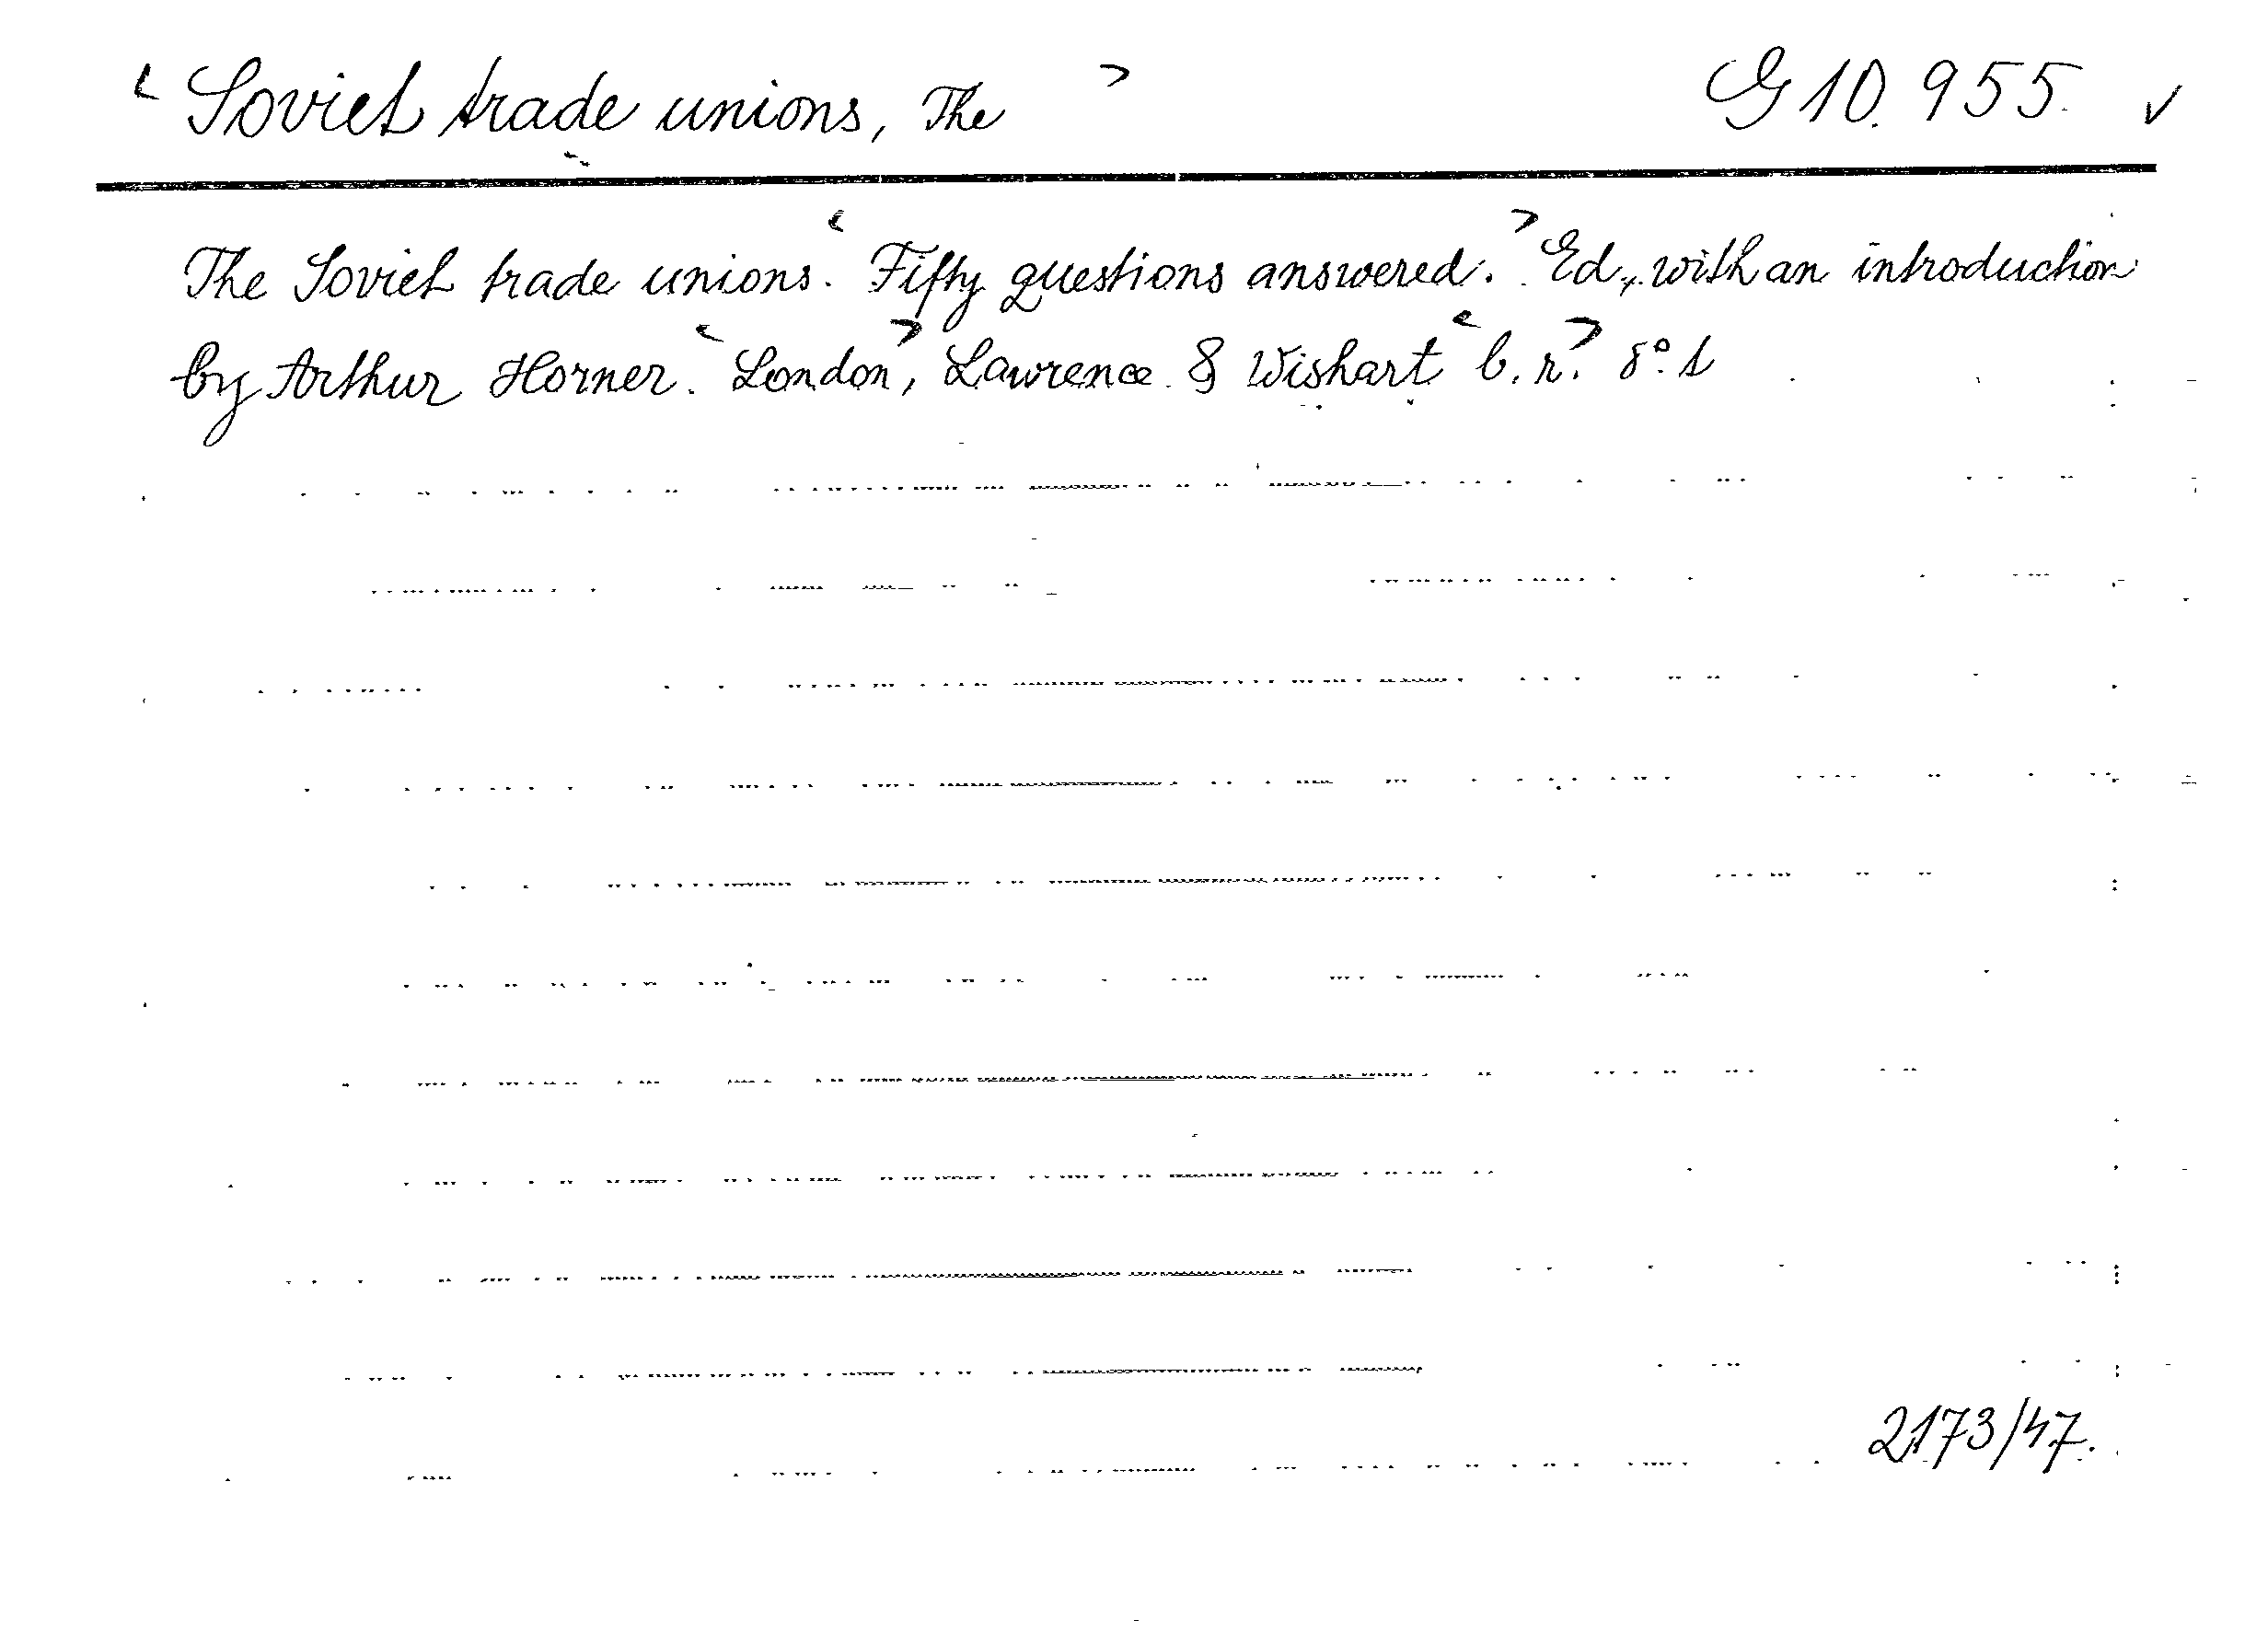 < Soviet trade unions, The > G 10.955. ✓
The Soviet trade unions. < Fifty questions answered. > Ed. with an introduction
by Arthur Horner. < London >, Lawrence & Wishart < b. r. > 8° s
2173/47.